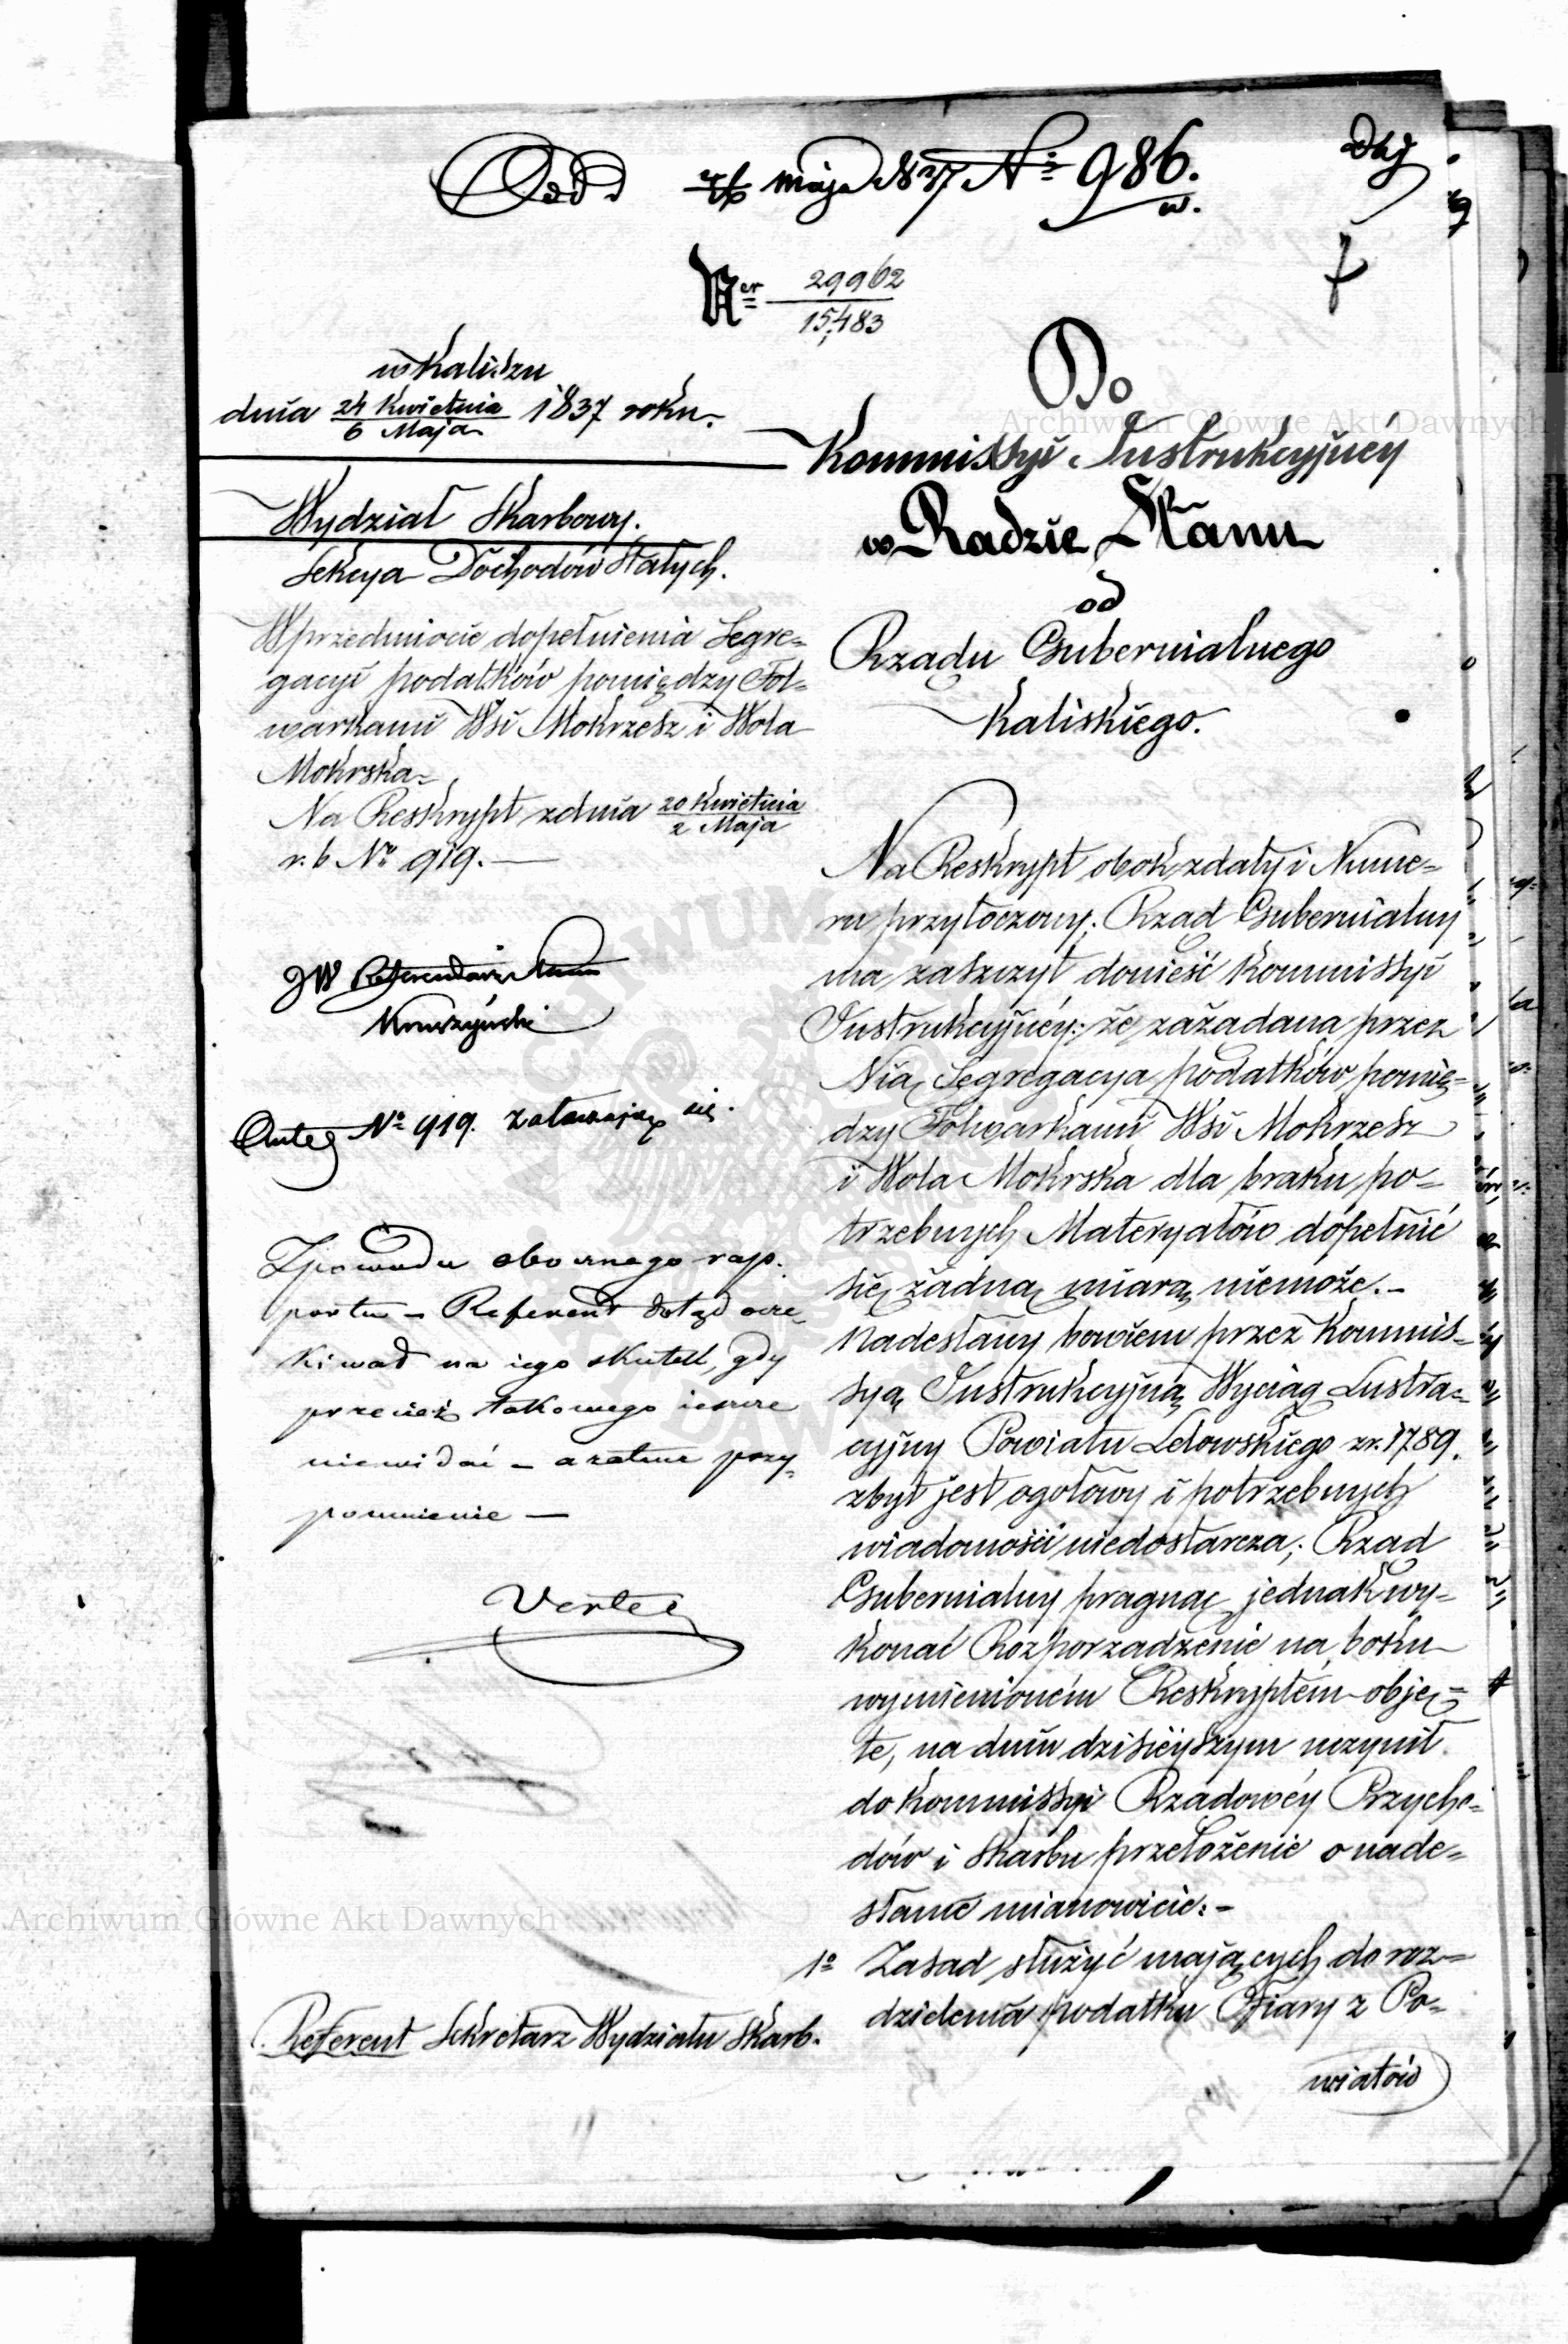 Odd maja 1837 Nº 986.
w.
Ner 29962
15,483
w Kaliszu
dnia 24 Kwietnia 1837 roku.
6 Maja
Wydział Skarbowy.
Sekcya Dochodów Stałych.
W przedmiocie dopełnienia Segre=
gacyi podatków pomiędzy Fol=
warkami Wsi Mokrzesz i Wola
Mokrska.
Na Reskrypt z dnia 20 Kwietnia
2 Maja
r. b. Nº 919.—
JW Referendarz Stanu
Antea Nº 919. załatwiając się.
Z powodu obocznego rap.
portu — Referent dotąd ocze,
kiwał na iego skutek, gdy
przecież takowego ieszcze
niewidać — a zatem przy,
pomnienie —
Verte
Referent Sekretarz Wydziału Skarb.
Do
Kommissyi Instrukcyjnéy
w Radzie Stanu
od
Rządu Gubernialnego
Kaliskiego.
Na Reskrypt obok z daty i Nume=
ru przytoczony; Rząd Gubernialny
ma zaszczyt donieść Kommissyi
Instrukcyjnéy: że zażądana przez
Nią Segregacya podatków pomię=
dzy Folwarkami Wsi Mokrzesz
i Wola Mokrska dla braku po=
trzebnych Materyałów dopełnić
się żadną miarą niemoże.—
Nadesłany bowiem przez Kommis=
syą Instrukcyjną Wyciąg Lustra=
cyjny Powiatu Lelowskiego z r. 1789.
zbyt jest ogołowy i potrzebnych
wiadomości niedostarcza; Rząd
Gubernialny pragnąc jednak wy=
konać Rozporządzenie na boku
wymienioném Reskryptem obję=
te, na dniu dzisiéyszym uczynił
do Kommissyi Rządowéy Przycho=
dów i Skarbu przełożenie o nade=
słanie mianowicie:—
1º Zasad służyć mających do roz=
dzielenia podatku Ofiary z Po=
wiatów
Archiwum Główne Akt Dawnych
Archiwum Główne Akt Dawnych